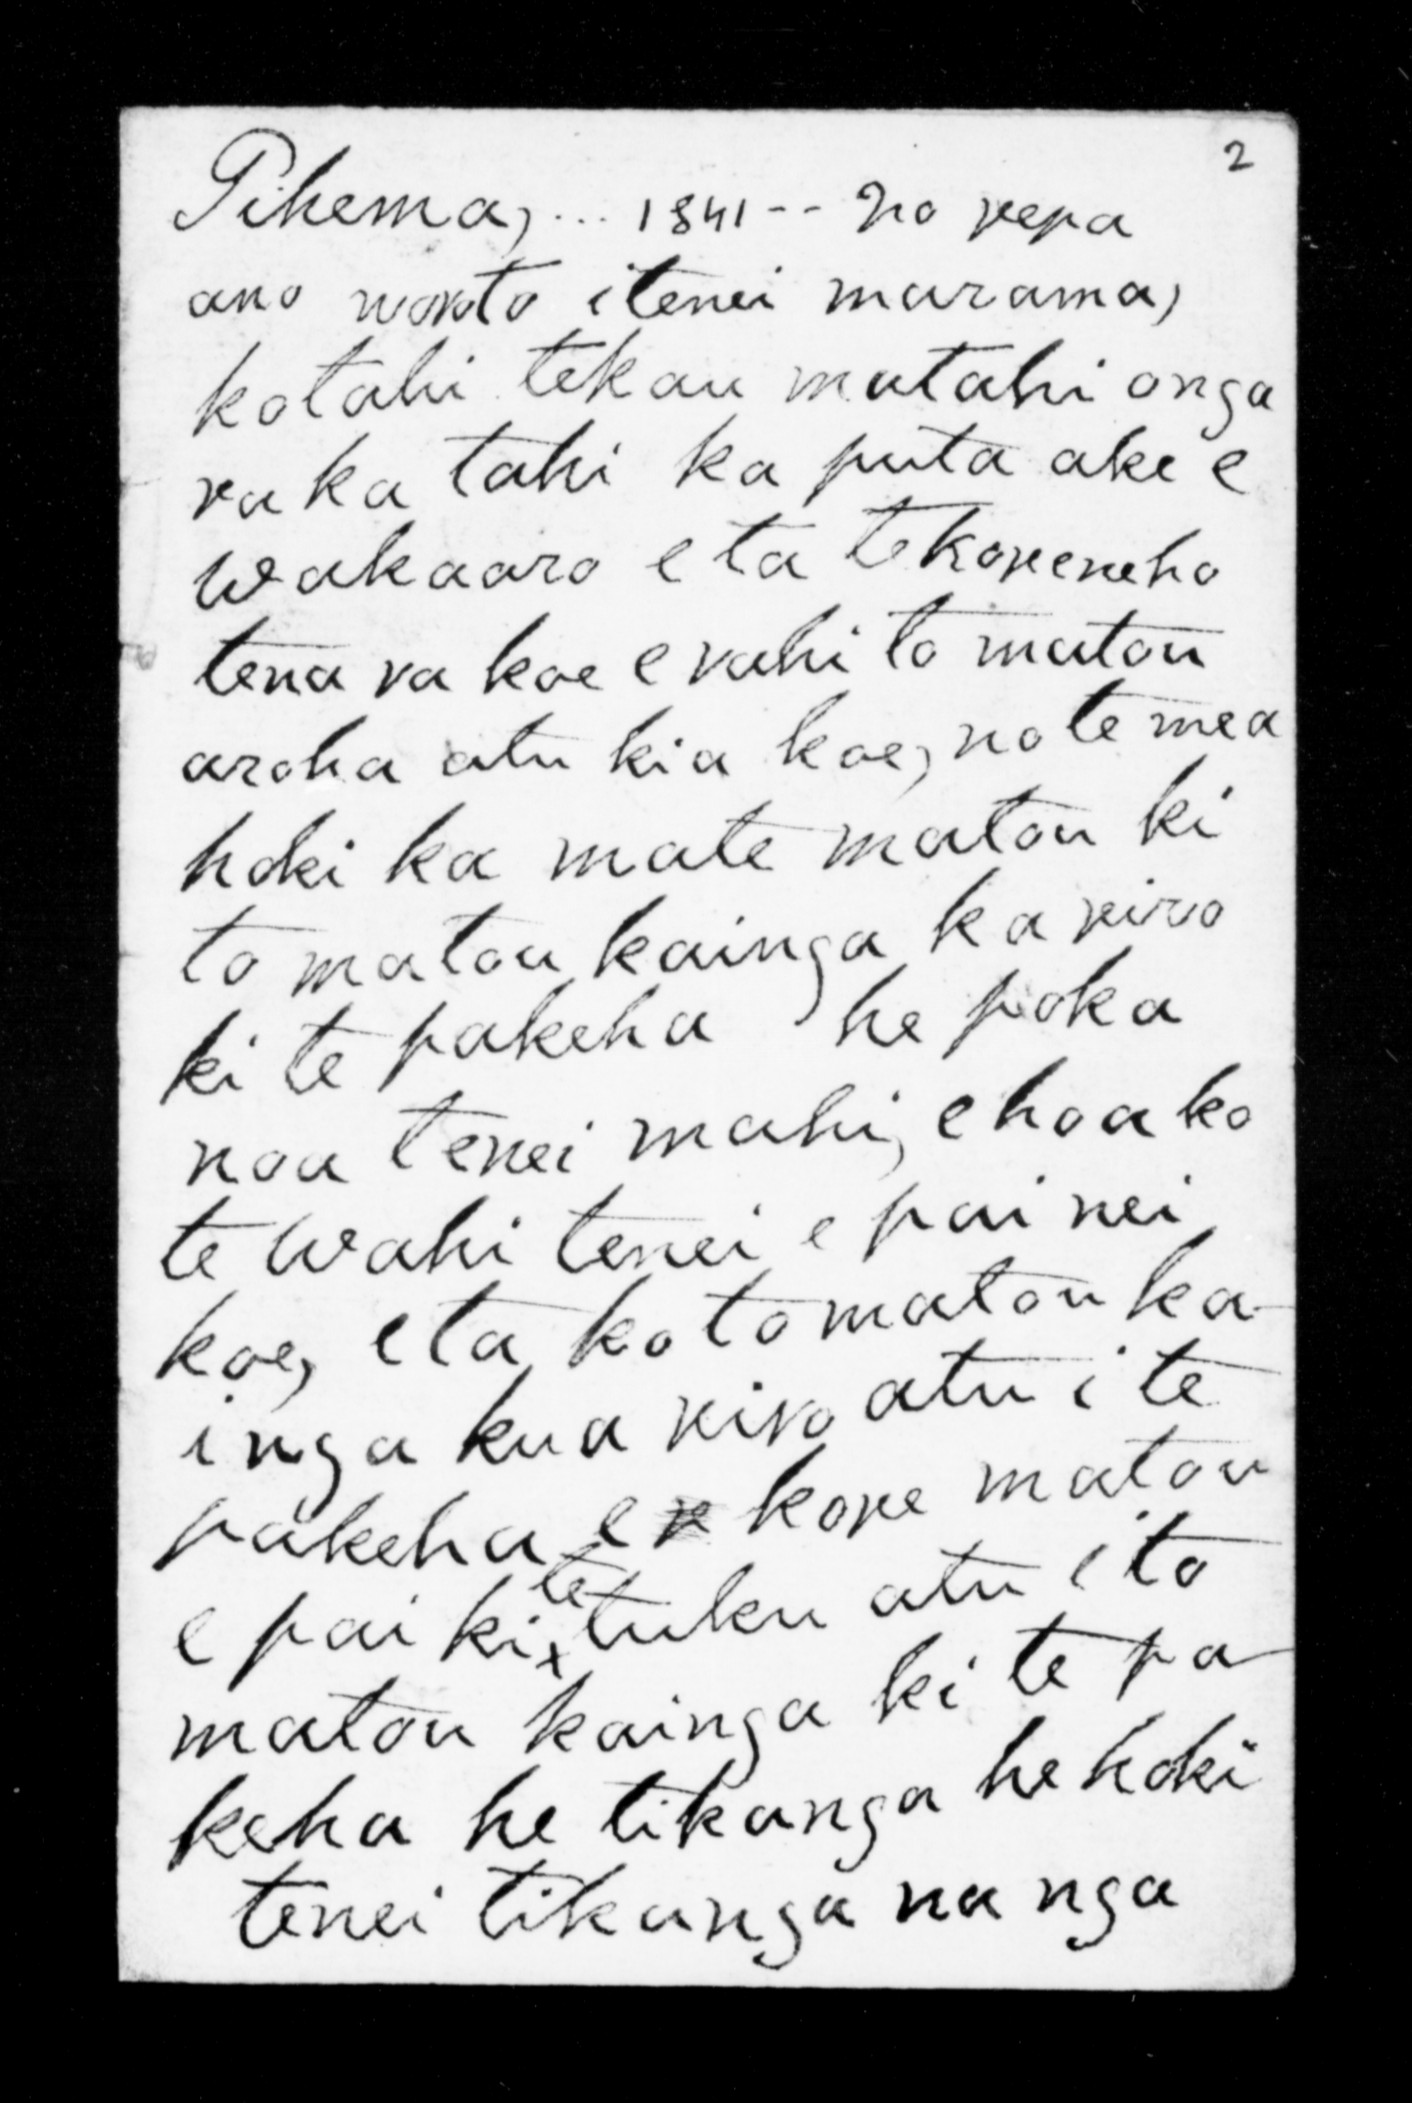 2
Pihema, ... 1841 -- No repa
ano woroto itenei marama,
kotahi tekau matahi onga
ra ka tahi ka puta ake e
wakaaro e ta te koreneho
tena ra koe e rahi to matou
aroha atu kia koe, no te mea
hoki ka mate matou ki
to matou kainga ka riro
ki te pakeha he poka
noa tenei mahi, e hoa ko
te wahi tenei e pai nei
koe, eta ko to matou ka
inga kua riro atu i te
pakeha e kore matou
e pai ki te tuku atu i to
matou kainga ki te pa
keha he tikanga he hoki
tenei tikanga na nga